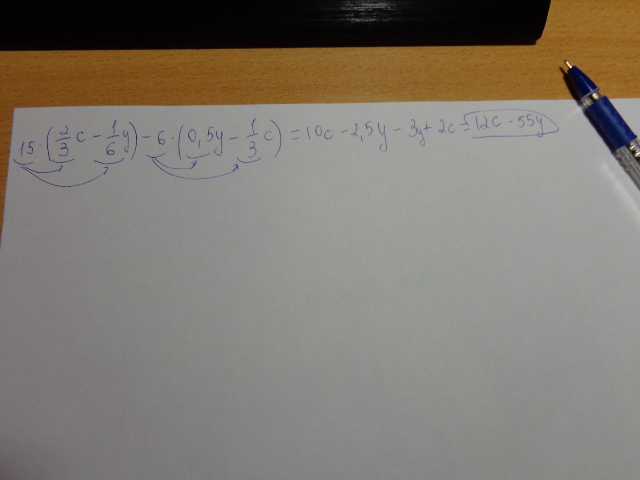 15 · (2/3 c - 1/6 y) - 6 · (0,5y - 1/3 c) = 10c - 2,5y - 3y + 2c = 12c - 55y